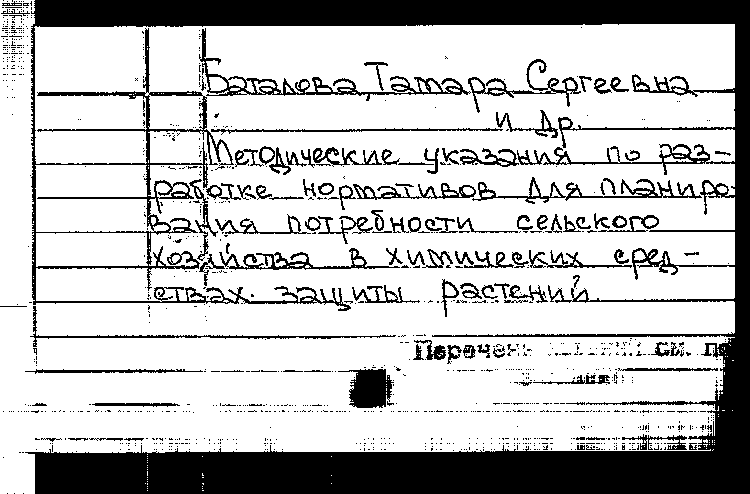 Баталова, Тамара Сергеевна
и др.
Методические указания по раз-
работке нормативов для планиро-
вания потребности сельского
хозяйства в химических сред-
ствах защиты растений.
Перечень см. по